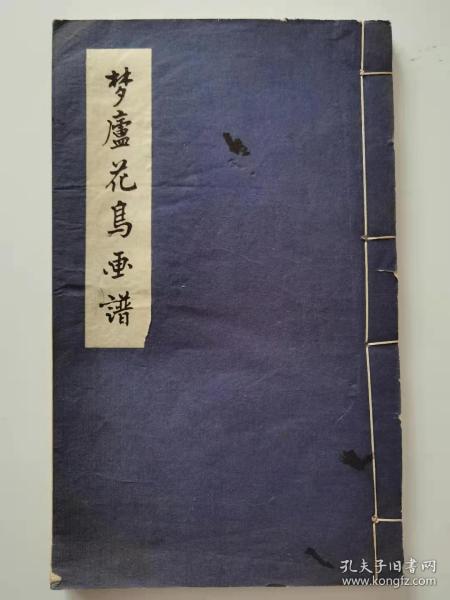 梦廬花鳥画譜
孔夫子旧书网
www.kongfz.com